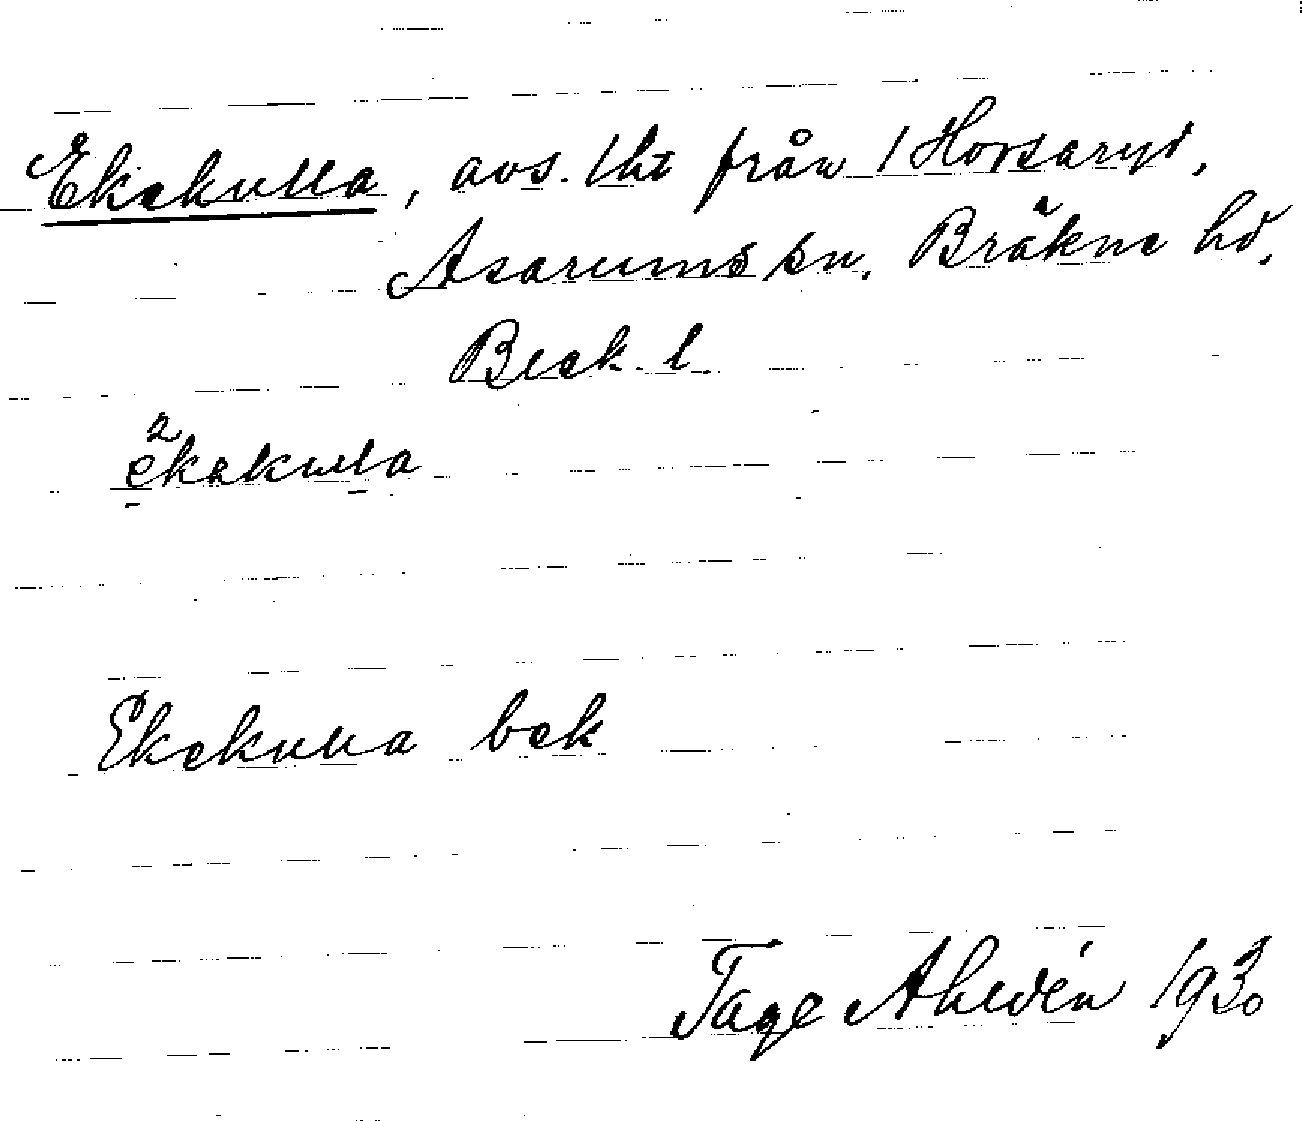 Ekekulla, avs. 1 ht från 1 Horsaryd,
Asarums sn. Bräkne hd.
Blek. l.
Ekekulla bek
Tage Ahldén 1930